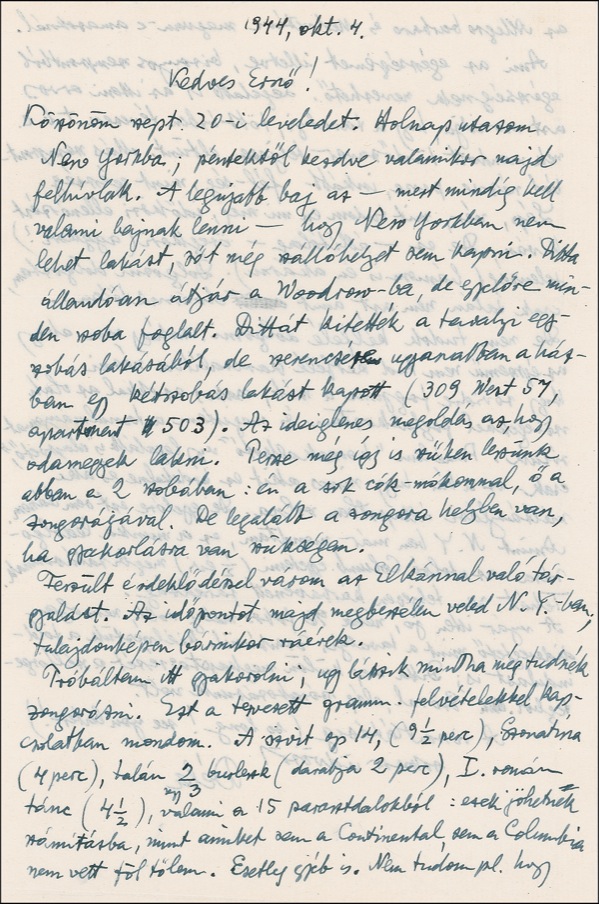 1944, okt. 4.
Kedves Ernő!
Köszönöm szept. 20-i leveledet. Holnap utazom
New Yorkba; péntektől kezdve valamikor majd
felhívlak. A legújabb baj az — mert mindig kell
valami bajnak lenni — hogy New Yorkban nem
lehet lakást, sőt még szállóhelyet sem kapni. Ditta
állandóan átjár a Woodrow-ba, de egyelőre min-
den szoba foglalt. Dittát kitették a tavalyi egy-
szobás lakásából, de szerencsére ugyanabban a ház-
ban egy kétszobás lakást kapott (309 West 57,
apartment # 503). Az ideiglenes megoldás az, hogy
odamegyek lakni. Persze még így is szűken leszünk
abban a 2 szobában: én a sok cók-mókommal, ő a
zongorájával. De legalább a zongora helyben van,
ha gyakorlásra van szükségem.
Feszült érdeklődéssel várom az Elkánnal való tár-
gyalást. Az időpontot majd megbeszélem veled N. Y.-ban;
tulajdonképen bármikor ráérek.
Próbáltam itt gyakorolni; úgy látszik mintha még tudnék
zongorázni. Ezt a tervezett gramm. felvételekkel kap-
csolatban mondom. A szvit op 14, (9 1/2 perc), Szonatina
(4 perc), talán 2 burleszk (darabja 2 perc), I. román
vagy 3
tánc (4 1/2), valami a 15 parasztdalokból: ezek jöhetnék
számításba, mint amiket sem a Continental, sem a Columbia
nem vett föl tőlem. Esetleg egyéb is. Nem tudom pl. hogy